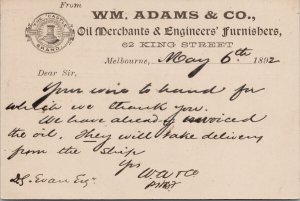 From
WM. ADAMS & CO.,
Oil Merchants & Engineers' Furnishers,
62 KING STREET
Melbourne, May 6th 1892
Dear Sir,
Your wire to hand for
which we thank you.
We have already invoiced
the oil. They will take delivery
from the ship
Yrs
W. A & Co
Evan Esq
BRAND